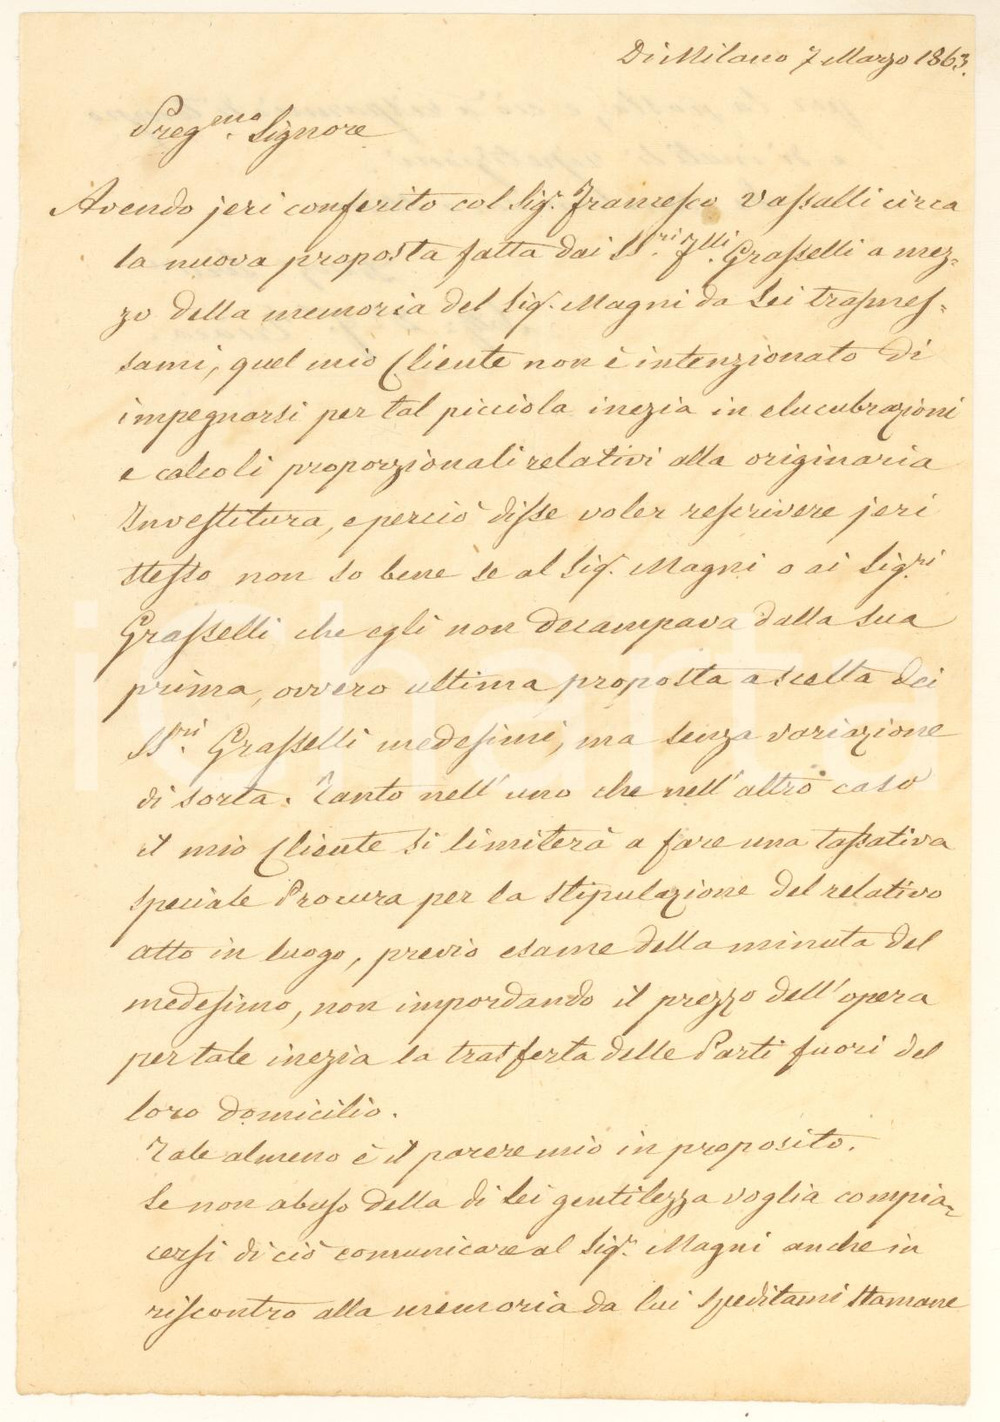 Di Milano 7 Marzo 1863.
Preg.mo Signore
Avendo jeri conferito col Sig.r Francesco Vassalli circa
la nuova proposta fatta dai SS.ri F.lli Grasselli a mez-
zo della memoria del Sig.r Magni da Lei trasmes-
sami, quel mio Cliente non è intenzionato di
impegnarsi per tal picciola inezia in elucubrazioni
e calcoli proporzionali relativi alla originaria
Investitura, e perciò disse voler rescrivere jeri
stesso non so bene se al Sig.r Magni o ai Sig.ri
Grasselli che egli non decampava dalla sua
prima, ovvero ultima proposta a scelta dei
SS.ri Grasselli medesimi, ma senza variazione
di sorta. Tanto nell'uno che nell'altro caso
il mio Cliente si limiterà a fare una tassativa
speciale Procura per la stipulazione del relativo
atto in luogo, previo esame della minuta del
medesimo, non impordando il prezzo dell'opera
per tale inezia la trasferta delle Parti fuori del
loro domicilio.
Tale almeno è il parere mio in proposito.
Se non abuso della di Lei gentilezza voglia compia-
cersi di ciò comunicare al Sig.r Magni anche in
riscontro alla memoria da lui speditami stamane
iCharta